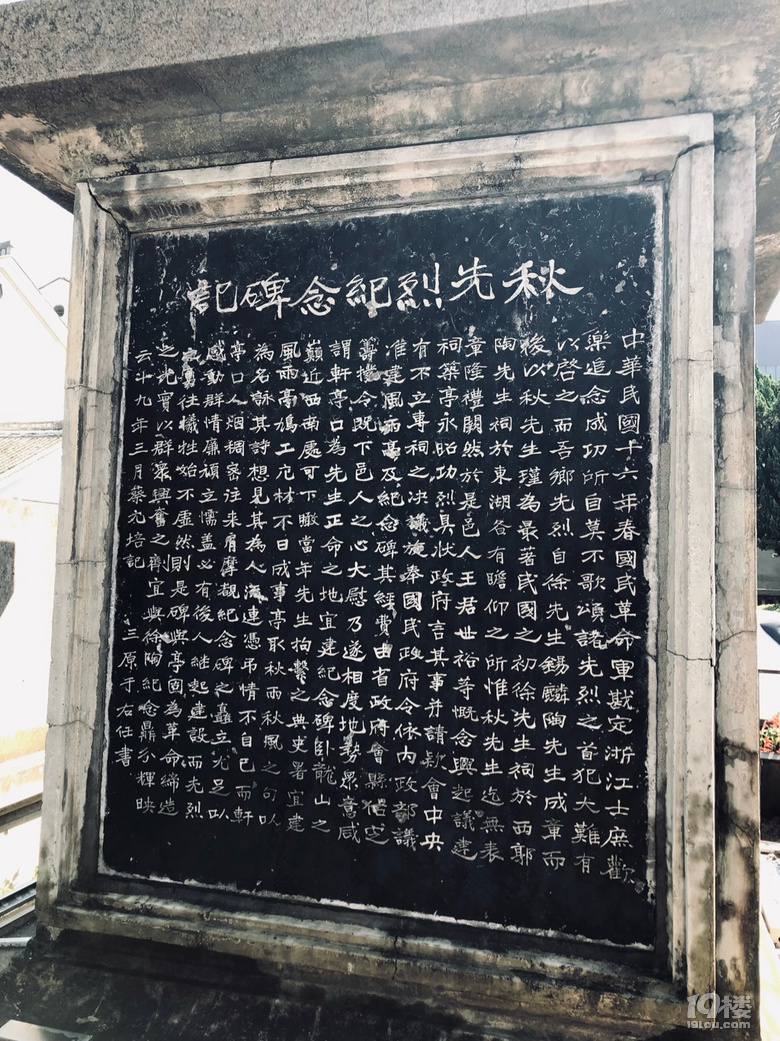 秋先烈紀念碑記
中華民國十六年春國民革命軍戡定浙江士庶歡
樂追念成功所自莫不歌頌諸先烈之首犯大難有
以啓之而吾鄉先烈自徐先生錫麟陶先生成章而
後以秋先生瑾為最著民國之初徐先生祠於西郭
陶先生祠於東湖各有瞻仰之所惟秋先生迄無表
章隆禮闕然於是邑人王君世裕等慨念興起議建
祠築亭永昭功烈具狀政府言其事并請欵會中央
有不立專祠之决議旋奉國民政府令依內政部議
准建風雨亭及紀念碑其經費由省政府會縣
籌撥令既下邑人之心大慰乃遂相度地勢眾意咸
謂軒亭口為先生正命之地宜建紀念碑卧龍山之
巔近西南處可下瞰當年先生拘繫之典史署宜建
風雨亭鳩工庀材不日成事亭取秋雨秋風之句以
為名詠其詩想見其為人流連憑弔情不自已而軒
亭口人烟稠密往來肩摩觀紀念碑之矗立尤足以
感動群情廉頑立懦盖必有後人繼起建設而先烈
之勇往犧牲始不虛然則是碑與亭固為革命締造
之光實以群眾興奮之劑宜與徐陶紀念鼎分輝映
云十九年三月蔡元培記 三原于右任書
19楼
19lou.com